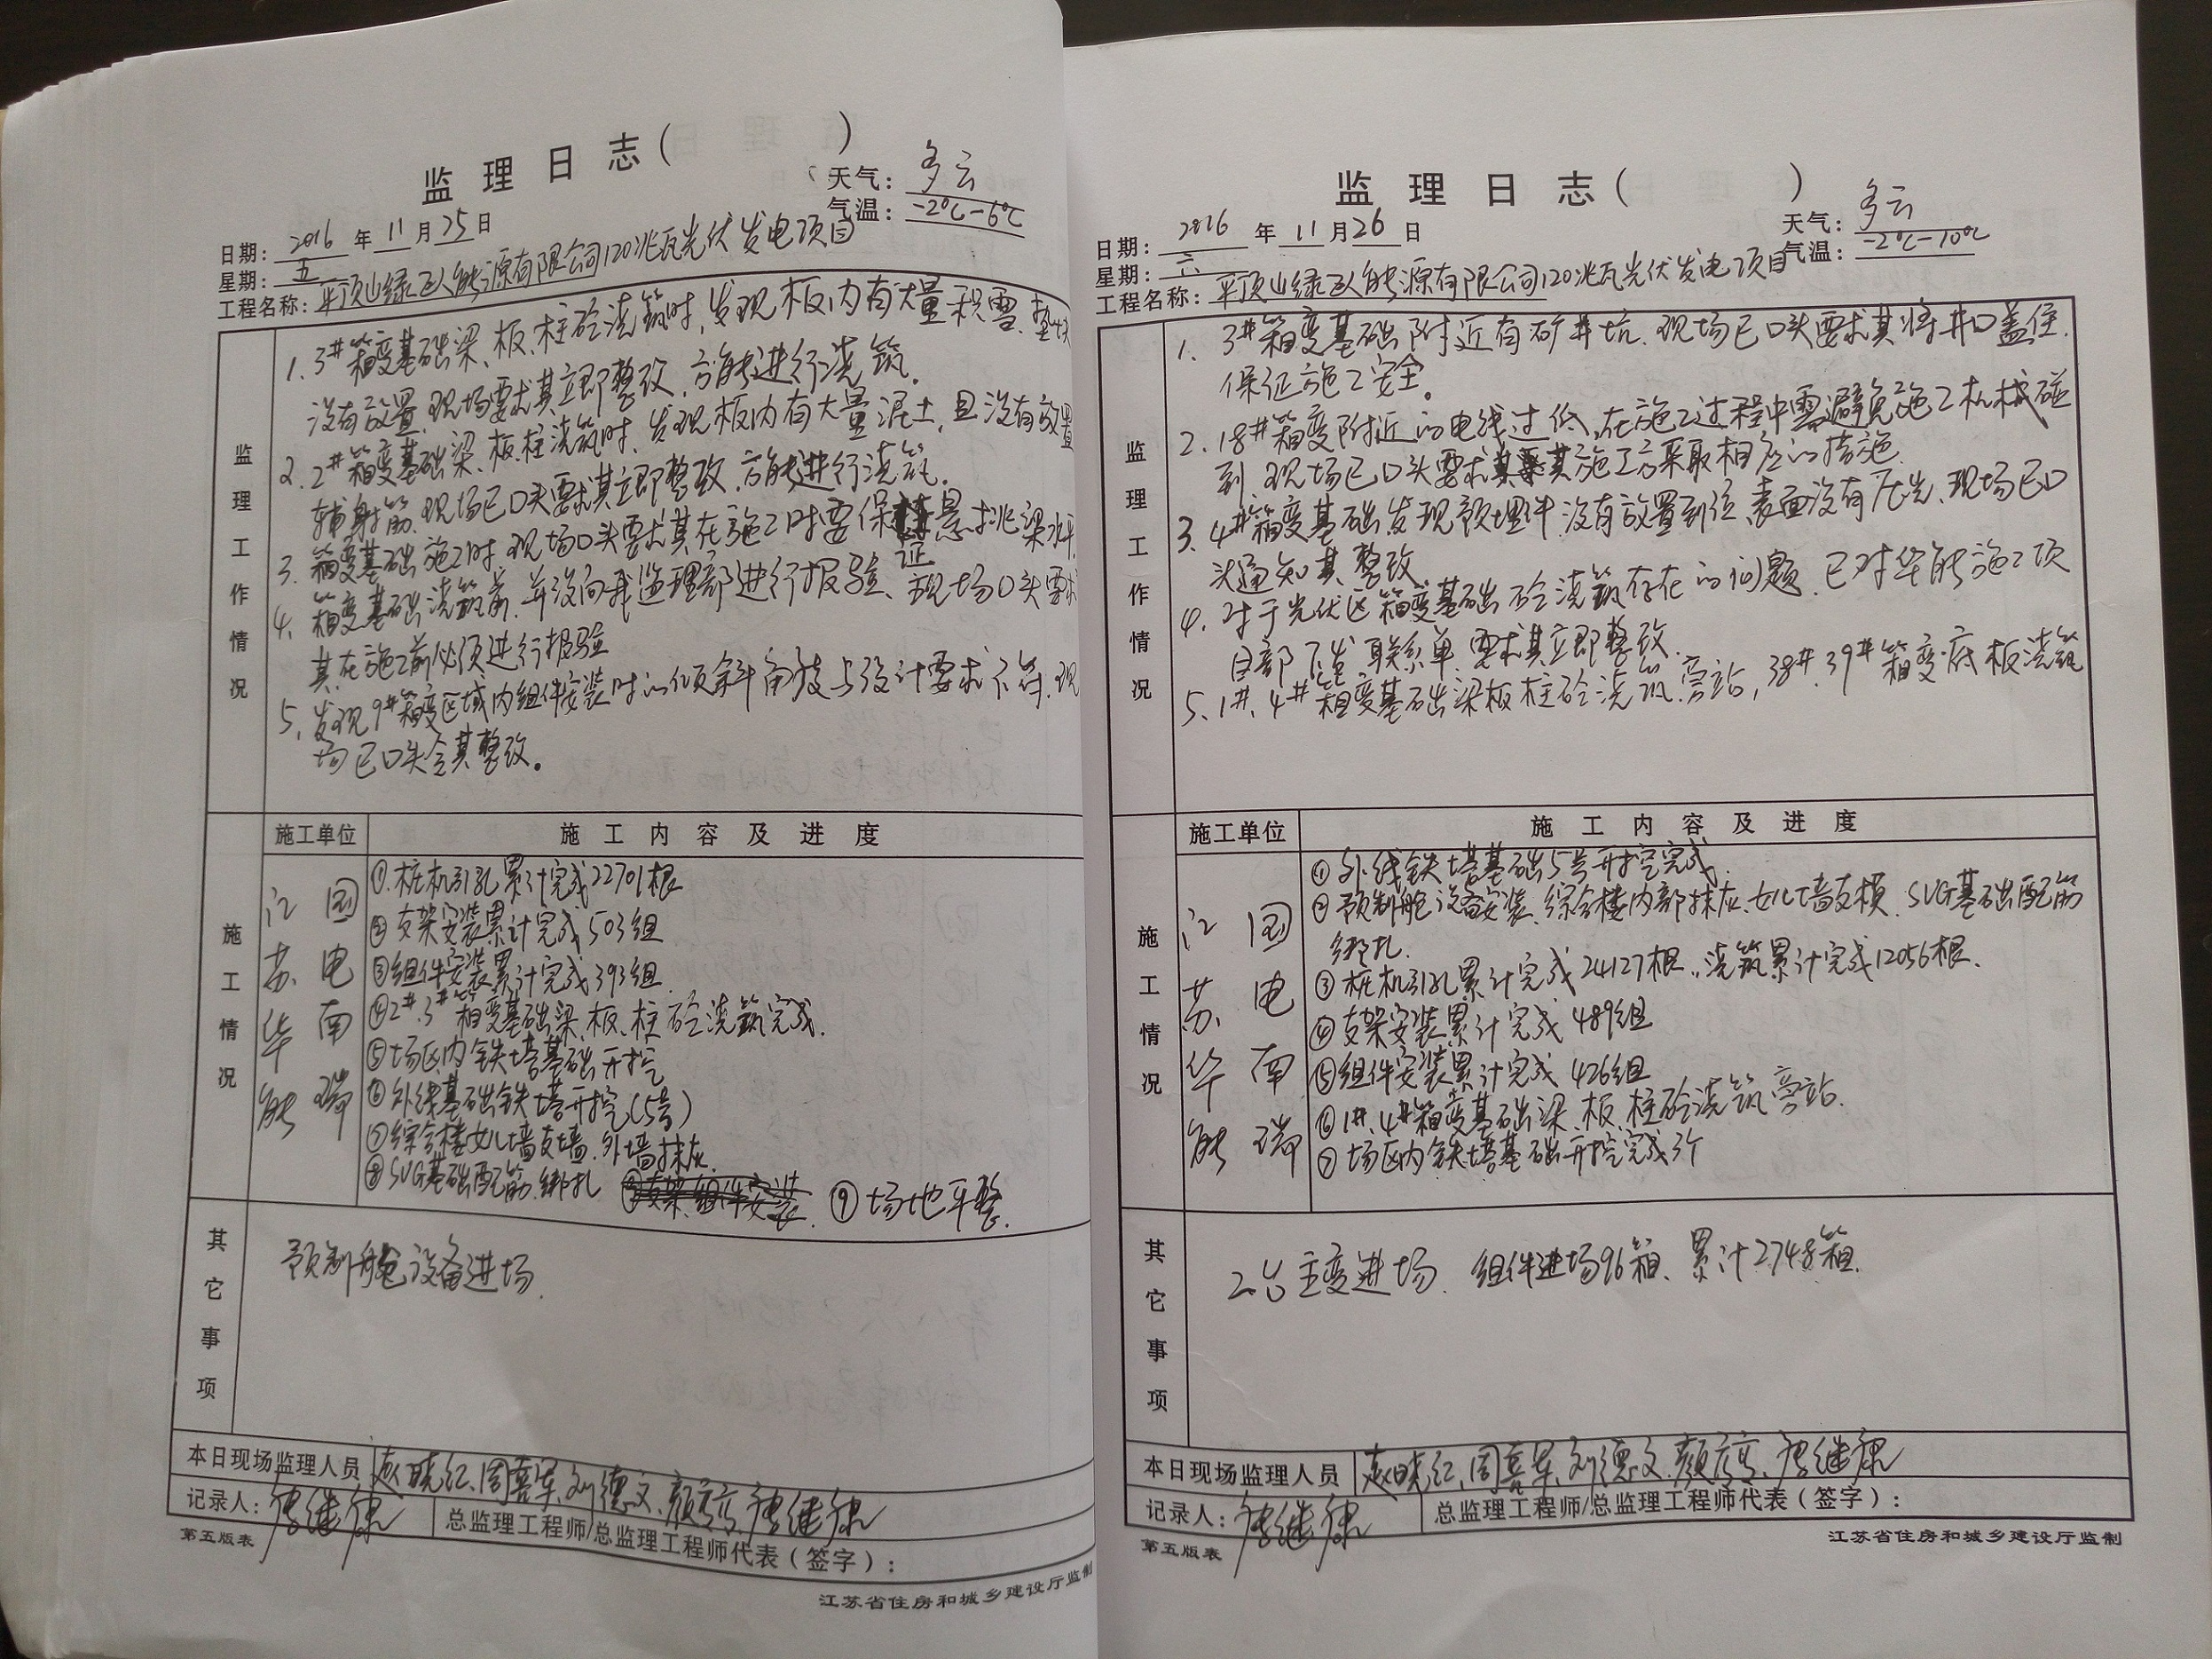 监理日志（ ）
天气：多云
气温：-2℃-6℃
日期：2016年11月25日
星期：五
工程名称：平顶山绿巨人能源有限公司120兆瓦光伏发电项目
监理工作情况
1. 3#箱变基础梁、板、柱砼浇筑时，发现板内有大量积雪、垫块
没有放置，现场要求其立即整改，方能进行浇筑。
2. 2#箱变基础梁、板、柱浇筑时，发现板内有大量泥土，且没有放置
辅射筋，现场已口头要求其立即整改，方能进行浇筑。
3. 箱变基础施工时，现场口头要求其在施工时要保证悬挑梁水平
4. 箱变基础浇筑前，并没向我监理部进行报验、现场口头要求
其在施工前必须进行报验
5. 发现9#箱变区域内组件安装时的倾斜角度与设计要求不符，现
场已口头令其整改。
施工单位 施工内容及进度
施工情况
江苏华能
国电南瑞
①桩机引孔累计完成22701根
②支架安装累计完成503组
③组件安装累计完成393组
④2#、3#箱变基础梁、板、柱砼浇筑完成.
⑤场区内铁塔基础开挖
⑥外线基础铁塔开挖(5号)
⑦综合楼女儿墙支墙、外墙抹灰.
⑧SVG基础配筋、绑扎 ⑨支架、组件安装. ⑨场地平整.
其它事项
预制舱设备进场.
本日现场监理人员 赵晓红、周喜军、刘德文、颜彦、唐继康
记录人：唐继康 总监理工程师/总监理工程师代表（签字）：
第五版表
江苏省住房和城乡建设厅监制
监理日志（ ）
天气：多云
气温：-2℃-10℃
日期：2016年11月26日
星期：六
工程名称：平顶山绿巨人能源有限公司120兆瓦光伏发电项目
监理工作情况
1. 3#箱变基础附近有矿井坑、现场已口头要求其将井口盖住.
保证施工安全。
2. 18#箱变附近的电线过低，在施工过程中需避免施工机械碰
到，现场已口头要求其施工方采取相应的措施.
3. 4#箱变基础发现预埋件没有放置到位、表面没有压光、现场已口
头通知其整改
4. 对于光伏区箱变基础砼浇筑存在的问题，已对华能施工项
目部下发联系单，要求其立即整改.
5. 1#、4#箱变基础梁板柱砼浇筑旁站，38#、39#箱变底板浇筑
施工单位 施工内容及进度
施工情况
江苏华能
国电南瑞
①外线铁塔基础5号开挖完成.
②预制舱设备安装、综合楼内部抹灰、女儿墙支模、SVG基础配筋
绑扎.
③桩机引孔累计完成24127根，浇筑累计完成12056根.
④支架安装累计完成489组
⑤组件安装累计完成426组
⑥1#、4#箱变基础梁、板、柱砼浇筑旁站.
⑦场区内铁塔基础开挖完成3个
其它事项
2台主变进场. 组件进场96箱、累计2748箱.
本日现场监理人员 赵晓红、周喜军、刘德文、颜彦、唐继康
记录人：唐继康 总监理工程师/总监理工程师代表（签字）：
第五版表
江苏省住房和城乡建设厅监制